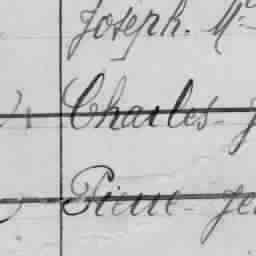 Joseph. M
Charles
Pierre